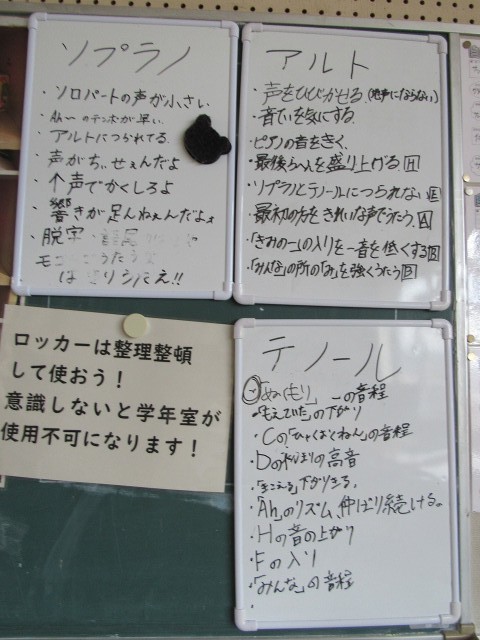 ソプラノ
・ソロパートの声が小さい
・Ah〜のテンポが早い
・アルトにつられてる
・声がちいせぇんだよ
・个声でかくしろよ
・響きが足んねぇんだよォ
・脱字
はっきりうたえ!!
アルト
・声をひびかせる。(地声にならない)
・音ていを気にする。
・ピアノの音をきく。
・最後らへんを盛り上げる。H
・ソプラノとテノールにつられない E
・最初の方をきれいな声でうたう。A
・「きみの一」の入りを一音を低くする B
・「みんな」の所の「み」を強くうたう
ロッカーは整理整頓
して使おう！
意識しないと学年室が
使用不可になります！
テノール
・「ぬくもり」一の音程
・「もえていた」の下がり
・Cの「ひゃくおくねん」の音程
・Dの の高音
・下がりきる。
・「Ah」のリズム、伸ばし続ける。
・Hの音の上がり
・Fの入り
・「みんな」の音程